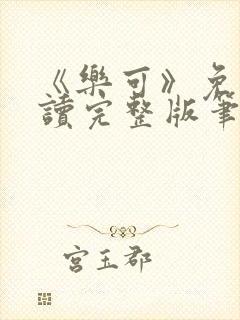 《樂可》免
讀完整版筆
宮玉郡